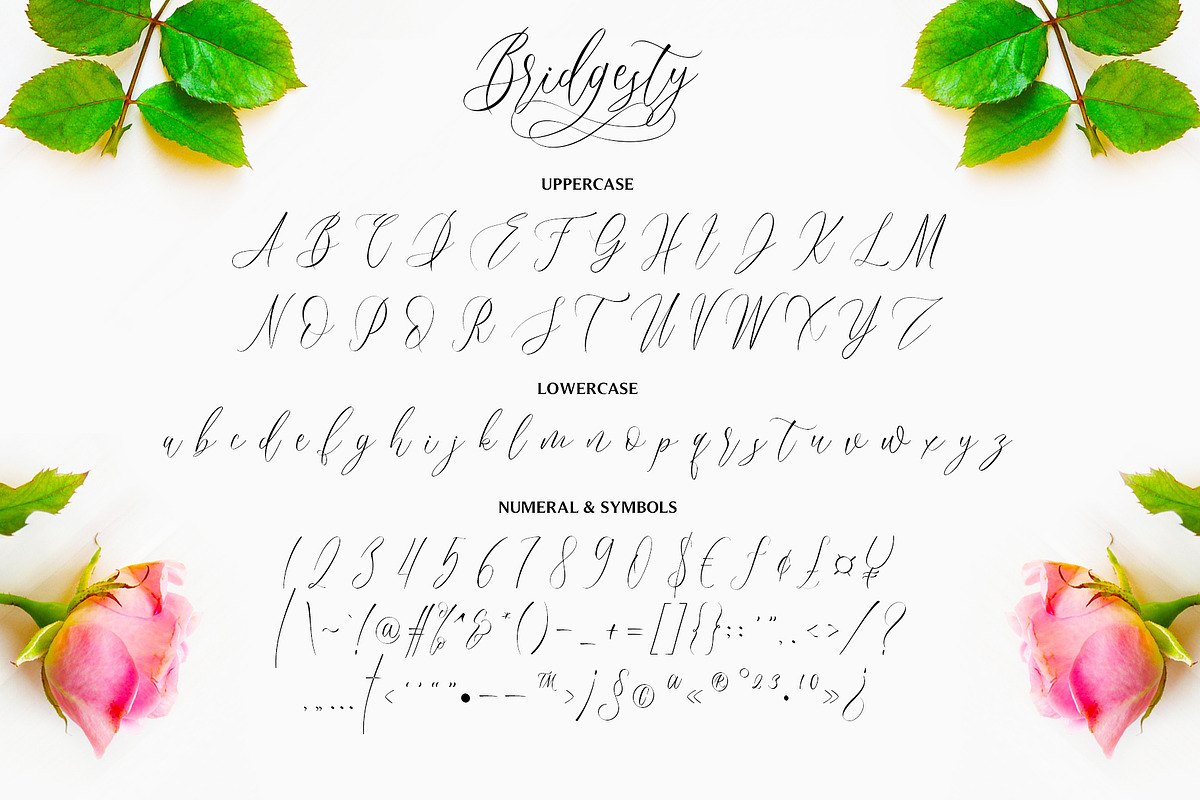 Bridgesty
UPPERCASE
A B C D E F G H I J K L M
N O P Q R S T U V W X Y Z
LOWERCASE
a b c d e f g h i j k l m n o p q r s t u v w x y z
NUMERAL & SYMBOLS
1 2 3 4 5 6 7 8 9 0 $ € ƒ ¢ £ ¤ ¥
| \ ~ ` ! @ # % ^ & * ( ) - _ + = [ ] { } ; : ' " , . < > / ?
‚ „ … † ‹ ‘ ’ “ ” • – — ™ › ¡ § © ª « ® ° 2 3 · 1 0 » ¿